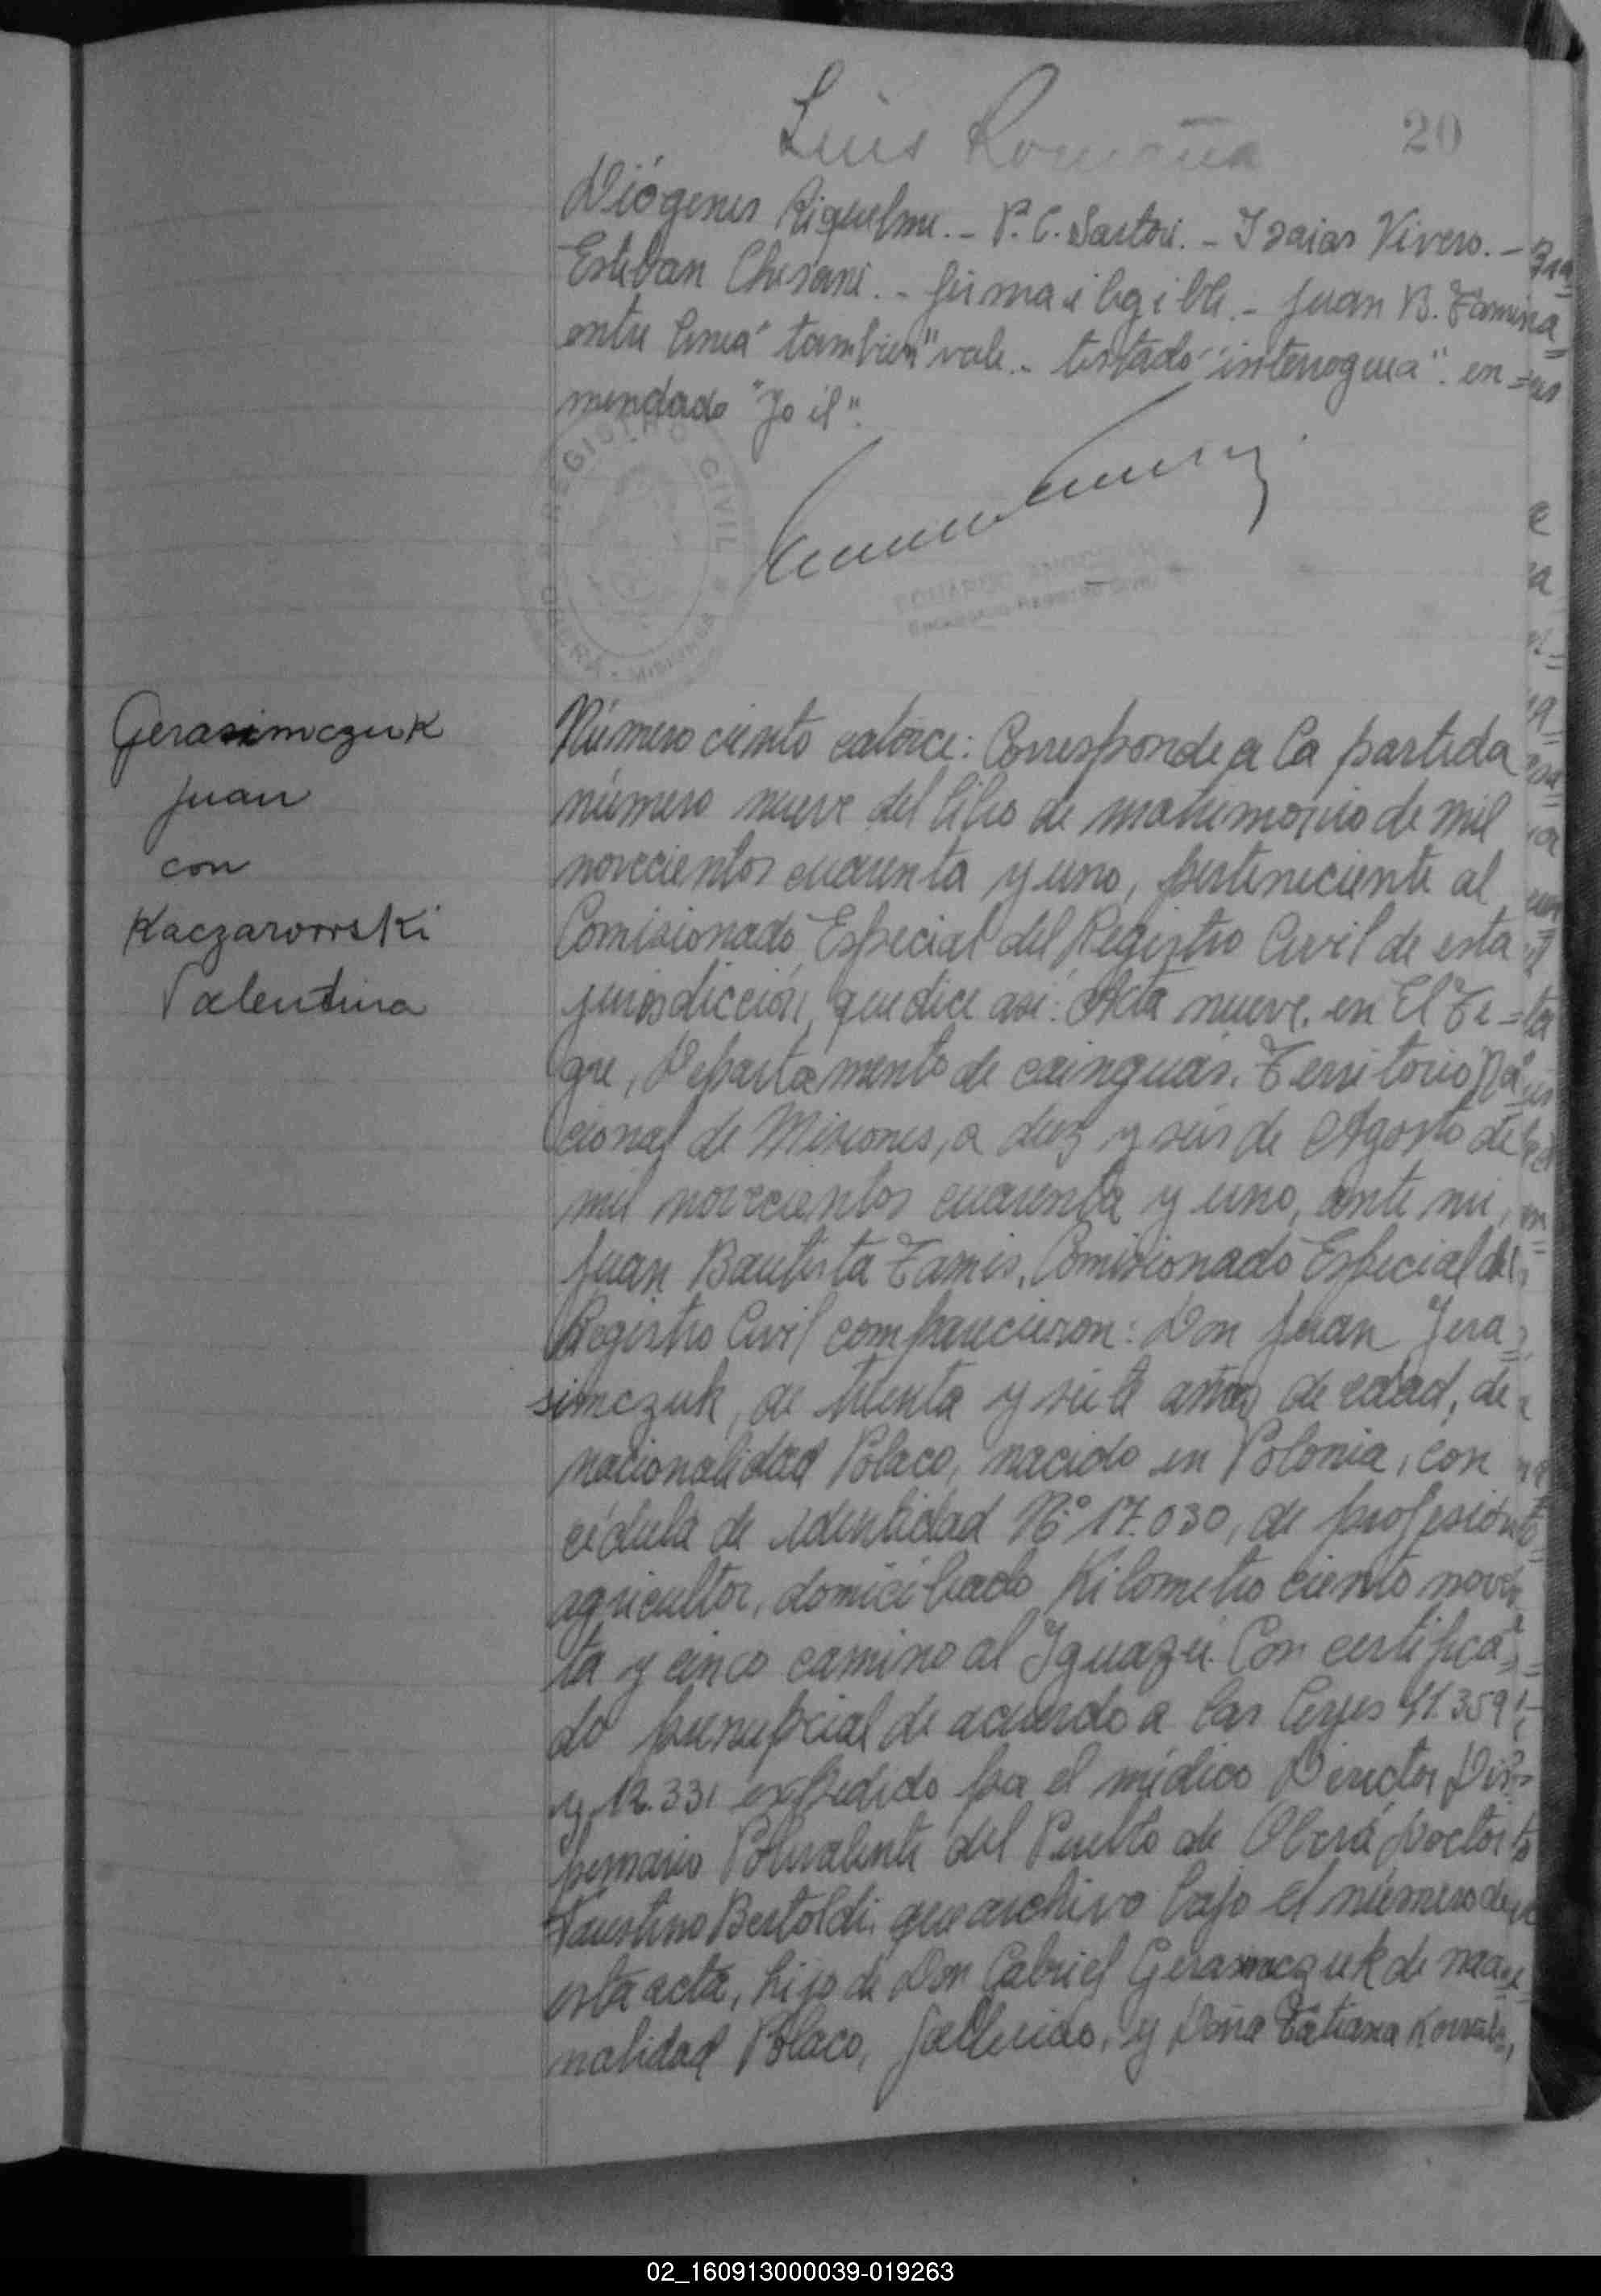 20
Luis
Diógenes Riquelme.- P. C. Sartori.- Isaias Vivero.-
Esteban Chesani.- firma ilegible.- Juan B. Tamis
entre linea "tambien" vale.- testado "interrogue a". en-
mendado "Yo el".
REGISTRO CIVIL
OBERA - MISIONES
Gerasimczuk
Juan
con
Kaczarowski
Valentina
Número ciento catorce: Corresponde a la partida
número nueve del libro de matrimonio de mil
novecientos cuarenta y uno, perteneciente al
Comisionado Especial del Registro Civil de esta
jurisdicción, que dice asi: Acta nueve. en El Ti-
gre, Departamento de cainguás. Territorio Na
cional de Misiones, a diez y seis de Agosto de
mil novecientos cuarenta y uno, ante mi,
Juan Bautista Tamis, Comisionado Especial del
Registro Civil comparecieron: Don Juan Jera
simczuk, de treinta y siete años de edad, de
nacionalidad Polaco, nacido en Polonia, con
cédula de identidad Nº 17.030, de profesión
agricultor, domiciliado Kilometro ciento noven
ta y cinco camino al Iguazú. Con certifica
do prenupcial de acuerdo a las leyes 11.359
y 12.331 expedido por el médico Director Dis-
pensario Polivalente del Pueblo de Oberá Doctor
Faustino Bertoldi. que archivo bajo el número de
esta acta, hijo de Don Gabriel Gerasimczuk de nacio
nalidad Polaco, fallecido, y Doña Tatiana
02_160913000039-019263